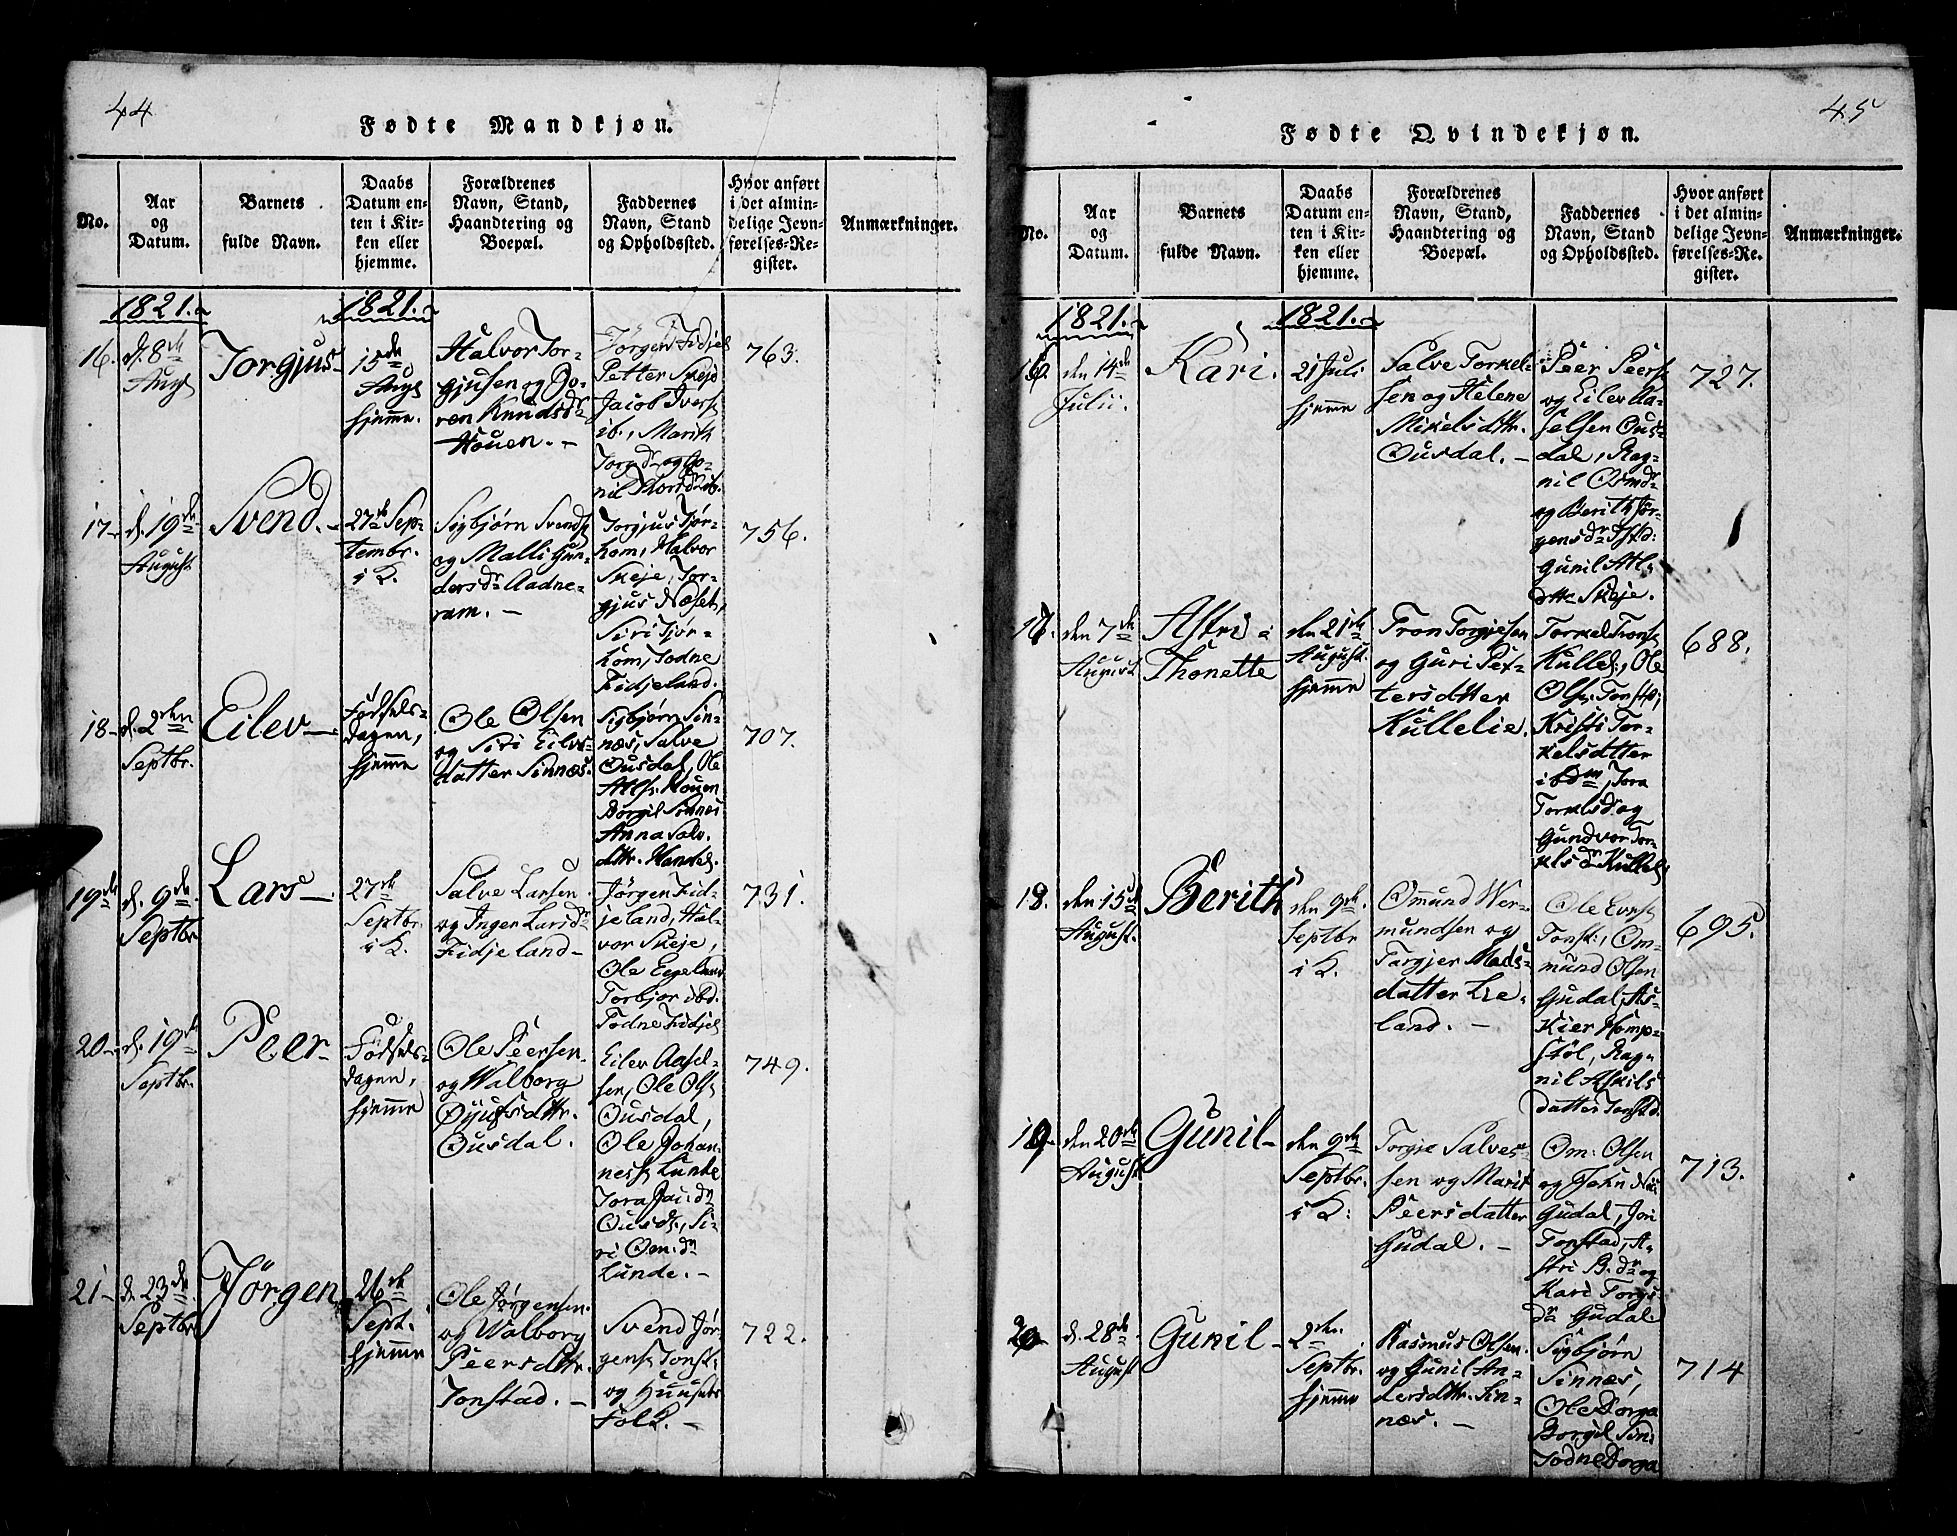 44
Fødte Mandkjøn.
No.
Aar
og
Datum.
Barnets
fulde Navn.
Daabs
Datum en-
ten i Kir-
ken eller
hjemme.
Forældrenes
Navn, Stand,
Haandtering og
Boepæl.
Faddernes
Navn, Stand
og Opholdssted.
Hvor anført
i det almin-
delige Jevn-
førelses-Re-
gister.
Anmærkninger.
1821.
1821.
16.
d. 8de
Augs
Torgjus
15de
Augs
hjemme.
Halvor Tor-
gjusen og Go-
ren Knudsdr
Houen. -
Jørgen Fidjel
Petter Skejd
Jacob Ivers
ib., Marith
763.
17-
d. 19de
August
Svend.
27de Sep-
tembr.
i K.
Sigbjørn Svends
og Malli Gun-
dersdr Aadne-
ram. -
Torgjus Tjør-
hom, Halvor
Skeje, Tor-
gjus Næset,
Siri Tjør-
hom, Todne
Fidjeland.
756.
18-
d. 2den
Septbr.
Eilev-
Fødsels-
dagen,
hjemme
Ole Olsen
og Siri Eilevs-
datter Sinnæs.
Sigbjørn Sin-
næs, Salve
Ousdal, Ole
Atls. Houen
Borgil Sinnæs
Anna Salv.
dttr. Handel.
707.
19de
d. 9de
Septbr
Lars-
27de
Septbr.
i K.
Salve Larsen
og Inger Larsdr
Fidjeland-
Jørgen Fid-
jeland, Hal-
vor Skeje,
Ole Egeland
Torbjor ibd.
Todne Fidjel
731.
20-
d. 19de
Septbr.
Peer-
Fødsels-
dagen,
hjemme
Ole Peersen
og Walborg
Øyufsdttr.
Ousdal.
Eilev Aasel-
sen, Ole Ols
Ousdal,
Ole Johan-
nes Lunde
Ousd., Si-
ri Om.dr
Lunde. -
749.
21-
d. 23de
Septbr
Jørgen
26de
Sept.
hjemme
Ole Jørgensen
og Walborg
Peersdttr.
Tonstad. -
Svend Jør-
gens Tonst.
og Huusets
Folk. -
722.
45
Fødte Qvindekjøn.
No.
Aar
og
Datum.
Barnets
fulde Navn.
Daabs
Datum en-
ten i Kir-
ken eller
hjemme.
Forældrenes
Navn, Stand,
Haandtering og
Boepæl.
Faddernes
Navn, Stand
og Opholdssted.
Hvor anført
i det almin-
delige Jevn-
førelses-Re-
gister.
Anmærkninger.
1821.
1821.
16.
den 14de
Julii.
Kari.
21 Juli
hjemme
Salve Torkel-
sen og Helene
Mikelsdttr.
Ousdal. -
Peer Peers
og Eilev Aa-
selsen Ous-
dal, Rag-
nil Osmdr
og Berith Jør-
gensdr
Gunil Atl.
dttr Skeje.
727.
17.
den 7de
August
Astri
Thonette
den 21de
August.
hjemme
Tron Torgjesen
og Guri Pet-
tersdtter
Kullelie.
Torkel Trons
Kullel., Ole
Ols. Tonst.,
Kristi Tor-
kelsdtter
ibdm, Tora
Torkelsd. og
Gundvor Tor-
kelsdr Kullel
688.
18.
den 15de
August.
Berith
den 9de
Septbr
i K.
Omund Wer-
mundsen og
Targjer Mads-
datter Lie-
land. -
Ole Evns
Tonst., Om-
mund Olsen
Gudal, As-
kier Homp-
støl, Rag-
nil Askils
datter Tonstd.
695.
19-
den 20de
August
Gunil-
den 9de
Septbr.
i K.
Torgje Salve-
sen og Marit
Peersdatter
Gudal. -
Om. Olsen
og John
Gudal, Jon
Tonstad, A-
stri B.dr og
Kari Torgs
dr Gudal
713.
20
d. 28de
August
Gunil-
2den
Septbr.
hjemme
Rasmus Olsen
og Gunil An-
dersdttr. Sin-
næs. -
Sigbjørn
Sinnæs,
Ole Dorga
Borgil Sin.
Todne Dorga
714